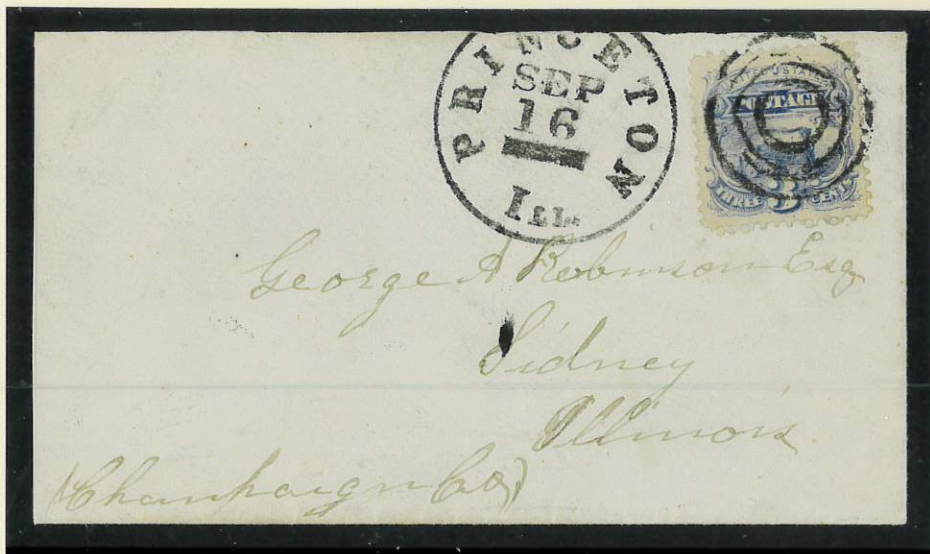 PRINCETON
SEP
16
ILL.
POSTAGE
THREE 3 CENTS
George A Robinson Esq
Sidney
Illinois
(Champaign Co)